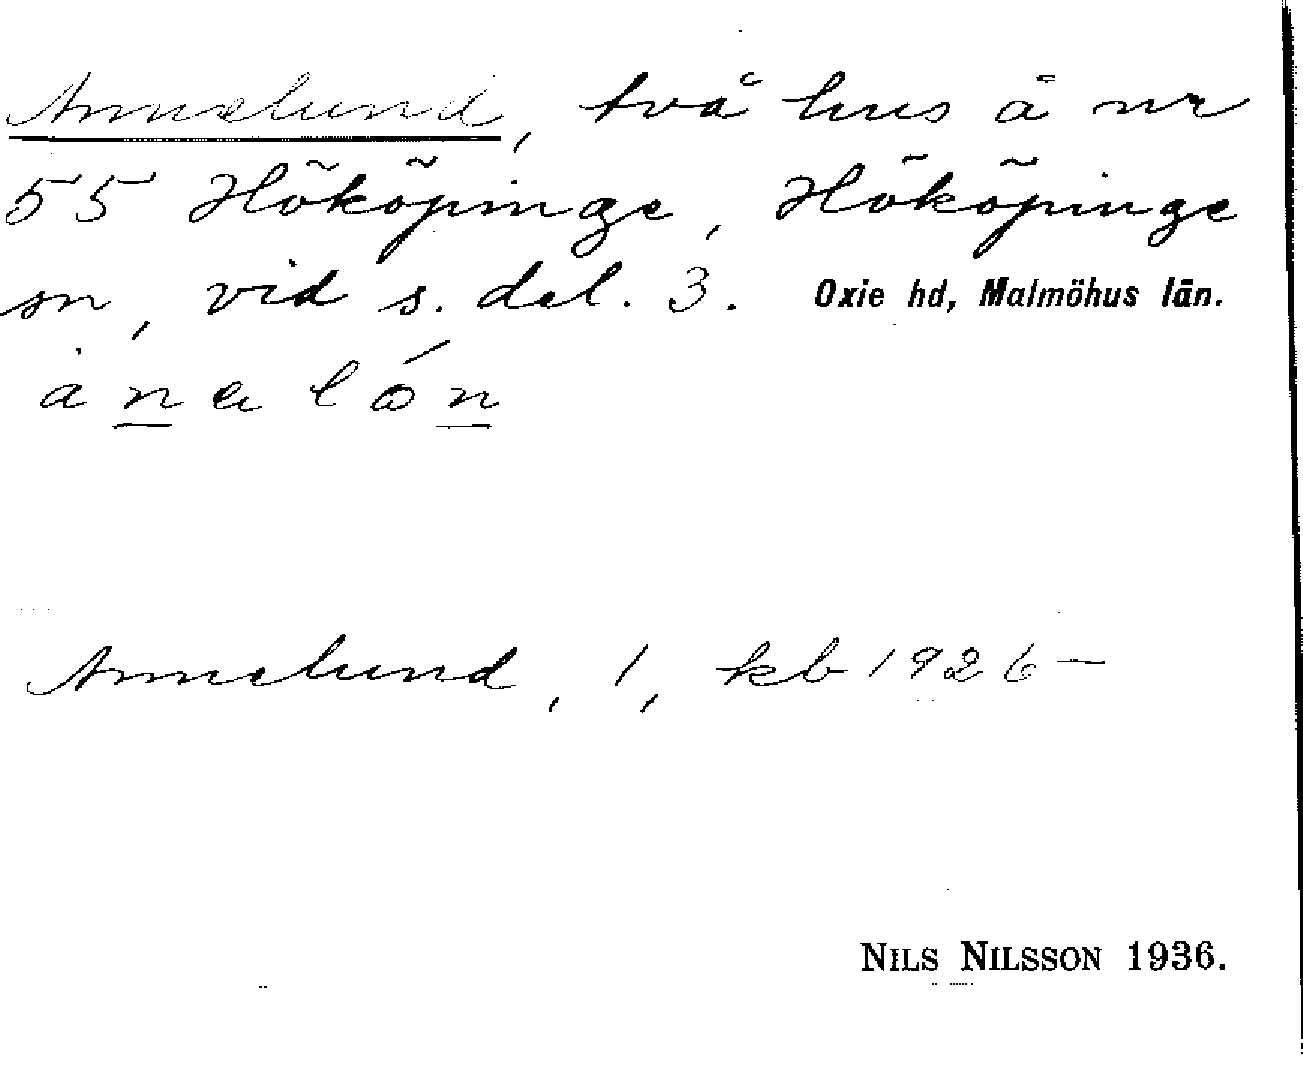 Annelund, två hus å nr
55 Hököpinge, Hököpinge
sn, vid s. del. 3. Oxie hd, Malmöhus län.
Annelund, 1, kb 1926—
NILS NILSSON 1936.